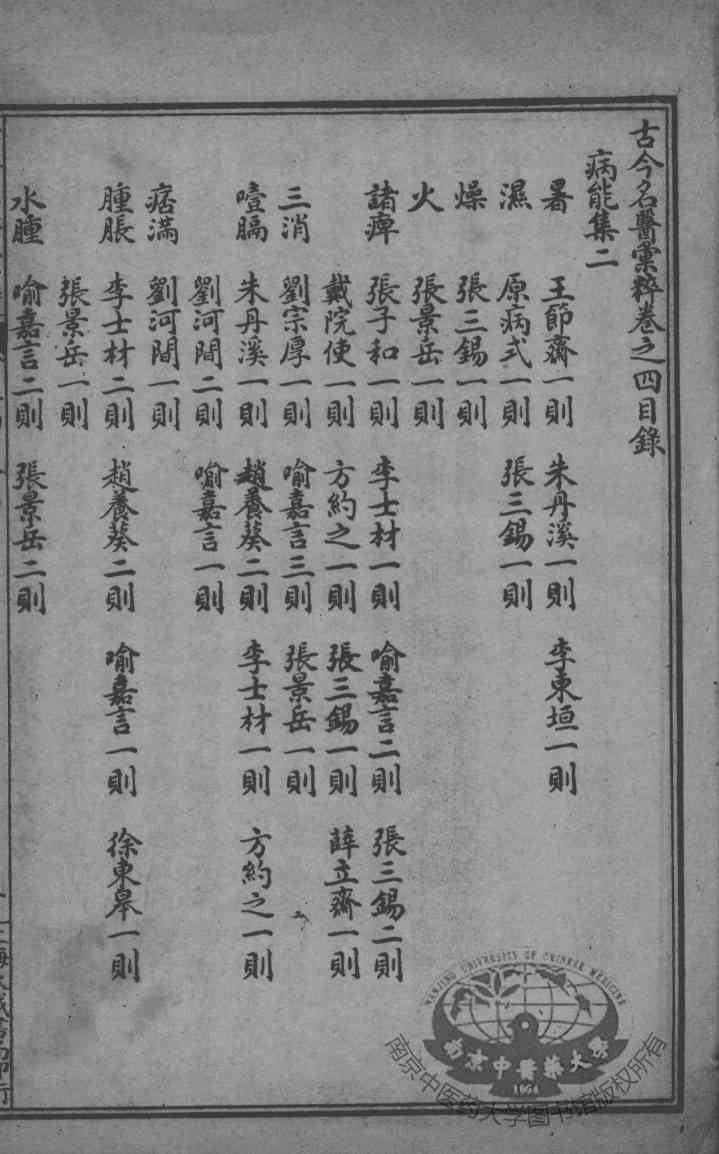 古今名醫彙粹卷之四目錄
病能集二
暑 王節齋一則 朱丹溪一則 李東垣一則
濕 原病式一則 張三錫一則
燥 張三錫一則
火 張景岳一則
諸痺 張子和一則 李士材一則 喻嘉言二則 張三錫二則
戴院使一則 方約之一則 張三錫一則 薛立齋一則
三消 劉宗厚一則 喻嘉言三則 張景岳一則
噎膈 朱丹溪一則 趙養葵二則 李士材一則 方約之一則
劉河間二則 喻嘉言一則
痞滿 劉河間一則
腫脹 李士材二則 趙養葵二則 喻嘉言一則 徐東皋一則
張景岳一則
水腫 喻嘉言二則 張景岳二則
NANJING UNIVERSITY OF CHINESE MEDICINE
南京中醫藥大學
1954
南京中医药大学图书馆版权所有